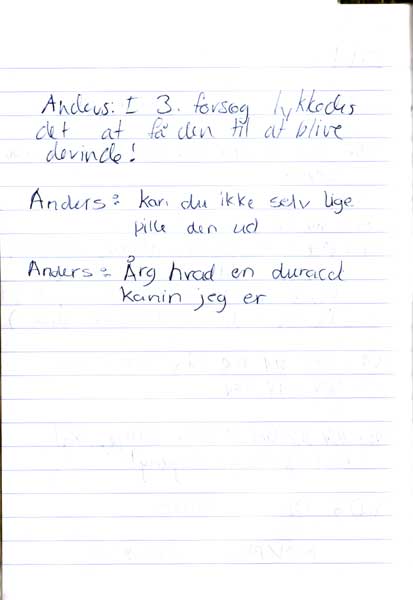 Anders: I 3. forsøg lykkedes
det at få den til at blive
derinde!
Anders: kan du ikke selv lige
pille den ud
Anders: Årg hvad en duracel
kanin jeg er